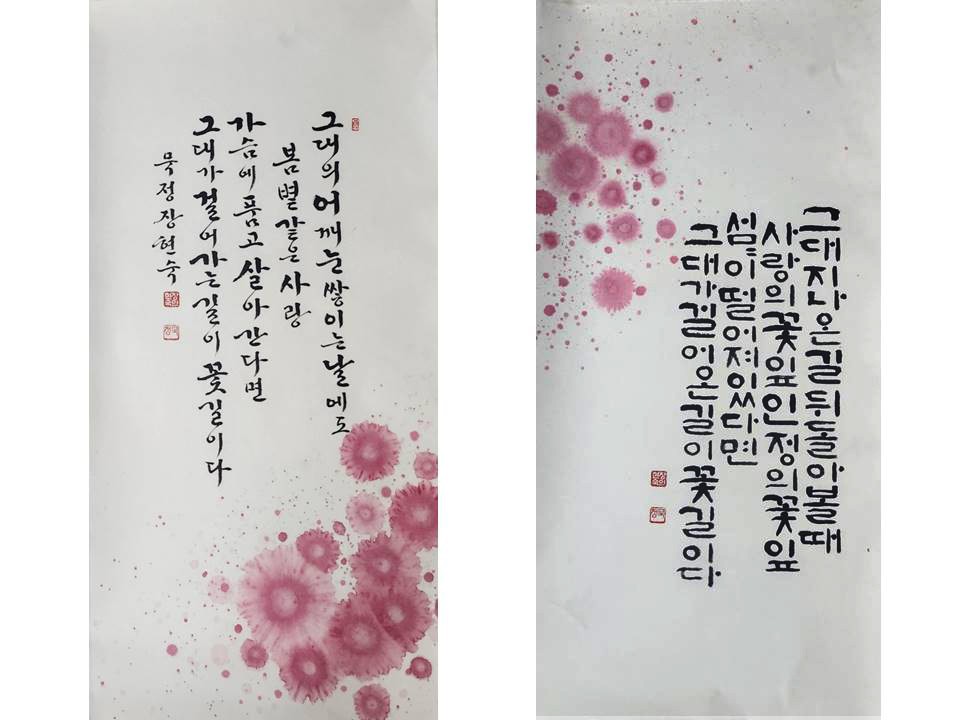 그대의 어깨 눈 쌓이는 날에도
봄볕 같은 사랑
가슴에 품고 살아간다면
그대가 걸어가는 길이 꽃길이다
묵정 장현숙
그대 지나온 길 뒤돌아볼 때
사랑의 꽃잎 인정의 꽃잎
섬〃이 떨어져 있다면
그대가 걸어온 길이 꽃길이다